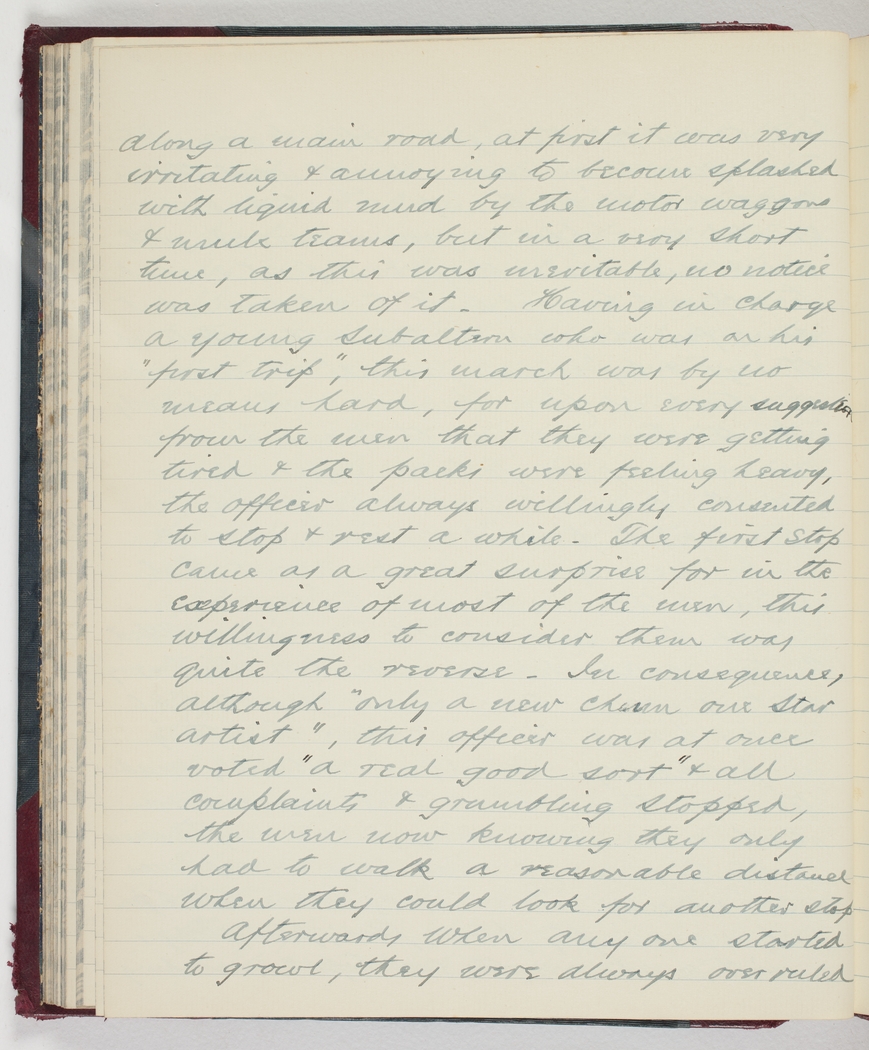 along a main road, at first it was very
irritating & annoying to become splashed
with liquid mud by the motor waggons
& mule teams, but in a very short
time, as this was inevitable, no notice
was taken of it. Having in charge
a young subaltern who was on his
"first trip", this march was by no
means hard, for upon every suggestion
from the men that they were getting
tired & the packs were feeling heavy,
the officer always willingly consented
to stop & rest a while. The first stop
came as a great surprise for in the
experience of most of the men, this
willingness to consider them was
quite the reverse. In consequence,
although "only a new chum one star
artist", this officer was at once
voted "a real good sort" & all
complaints & grumbling stopped,
the men now knowing they only
had to walk a reasonable distance
when they could look for another stop
Afterwards when any one started
to growl, they were always overruled